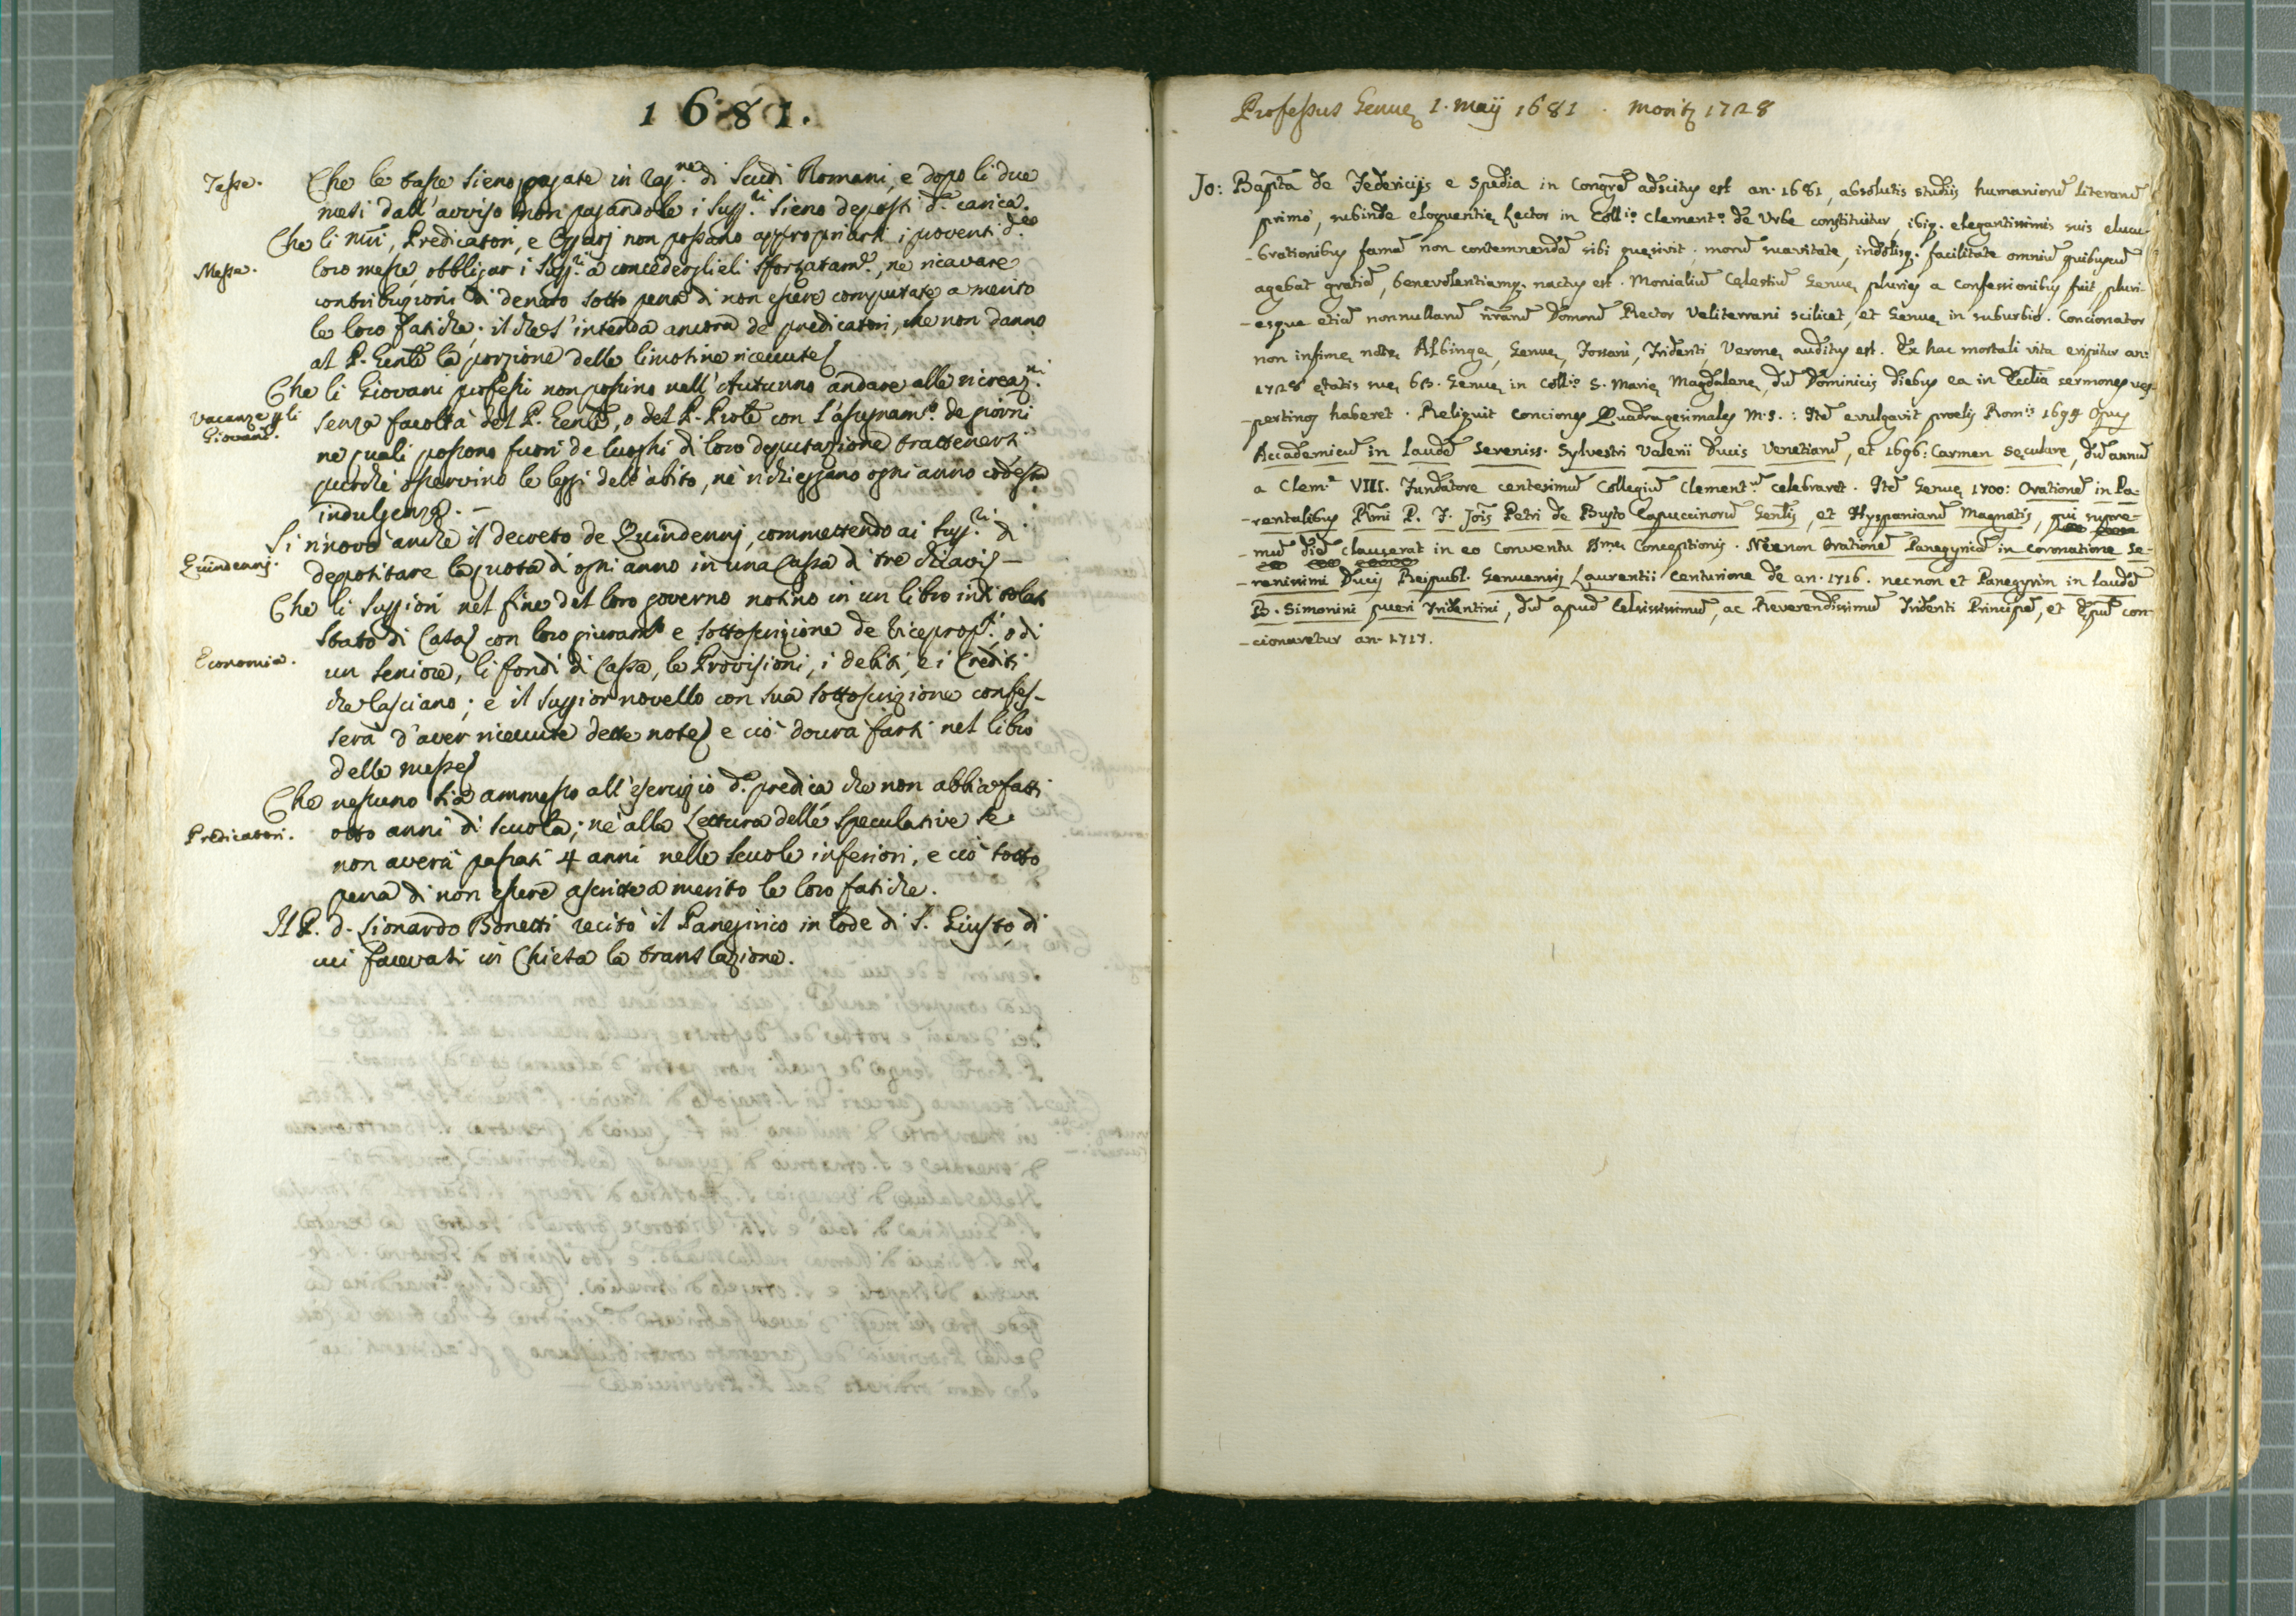 1681.
Tasse.
Che le tasse sieno pagate in rag.ne di Scudi Romani, e dopo li due
mesi dall'avviso non pagandole i Supp.ri sieno deposti d.a carica.
Che li nri, Predicatori, e non possano appropriarsi i proventi d.e
Messa.
loro messe, obbligar i Sup.ri a concederglieli sforzatam.e, ne ricavare
contribuzioni di denaro sotto pena di non essere computate a merito
le loro fatiche; il che s'intenda ancora de predicatori, che non danno
al P. Gen.le la porzione delle limosine riceuute
Che li Giovani professi non possino nell'Autunno andare alle ricreaz.ni
Vacanze p li
Giovani.
senza facoltà del P. Gen.le, o del P. Pro.le con l'assegnam.to de giorni
ne quali possono fuori de luoghi di loro deputazione trattenersi
purchè osservino le leggi dell'abito, nè richieggano ogni anno codesta
indulgenza. -
Si rinovò anche il decreto de Quindennj, commettendo ai Sup.ri di
Quindennj.
depositare la quota di ogni anno in una Cassa di tre chiavi -
Che li Suppiori nel fine del loro governo notino in un libro intitolato
Stato di Casa con loro giuram.to e sottoscrizione de Viceprop.ti o di
Economia.
un seniore, li fondi di Cassa, le Provisioni, i debiti, e i Crediti
che lasciano; e il Suppior novello con sua sottoscrizione confes-
serà d'aver riceuute dette note e ciò dourà farsi nel libro
delle messe
Che nessuno sia ammesso all'esercizio d.a predica che non abbia fatti
Predicatori.
otto anni di scuola; nè alla Lettura delle speculative se
non averà passati 4 anni nelle scuole inferiori, e ciò sotto
pena di non essere ascritte a merito le loro fatiche.
Il P. d. Lionardo Bonetti recitò il Panegirico in lode di S. Giusto, di
cui facevasi in Chieta la translazione.
Professus Genuę 1. maij 1681. moritꝛ 1728
Jo: Bapta de Federicijs e Spedia in Congrē adscitus est an. 1681, absolutis studiis humaniorū literarū
primò, subinde eloquentię Lector in Coll.io Clement.o de Urbe constituitur, ibiq. elegantissimis suis elucu-
-brationibus famā non contemnendā sibi quęsivit. morū suavitate, indolisq. facilitate omniū quibuscū
agebat gratiā, benevolentiamq. nactus est. Monialiū Cęlestiū Genuę pluries a Confessionibus fuit, pluri-
-esque etiā nonnullarū nrarū Domorū Rector Veliterrani scilicet, et Genuę in suburbio. Concionator
non infimę notę Albingę, Genuę, Fossani, Tridenti, Veronę auditus est. Ex hac mortali vita eripitur an:
1728 ętatis suę 63. Genuę in Coll.io S. Marię Magdalenę, dū Dominicis diebus ea in Ecclia sermones ves-
-pertinos haberet. Reliquit Conciones Quadragesimales M.S.: Itē evulgavit proelis Rom.is 1694 Opus
Accademicū in laudē Sereniss. Sylvestri Valerii Ducis Venetiarū, et 1696: Carmen Sęculare, dū annū
a Clem.e VIII. Fundatore centesimū Collegiū Clement.m celebraret. Itē Genuę 1700: Orationē in Pa-
-rentalibus Rmi P. F. Jois Petri de Busto Capuccinorū Genlis, et Hyspaniarū Magnatis, qui supre-
-mū diē clauserat in eo Conventu Bmę Conceptionis. Necnon Orationē Panegyricā in coronatione Se-
-renissimi Ducis Reipubl. Genuensis Laurentii Centurione de an. 1716. necnon et Panegyrim in laudē
B. Simonini pueri Tridentini, dū apud Celsissimū, ac Reverendissimū Tridenti Principē, et Epū con-
-cionaretur an. 1717.